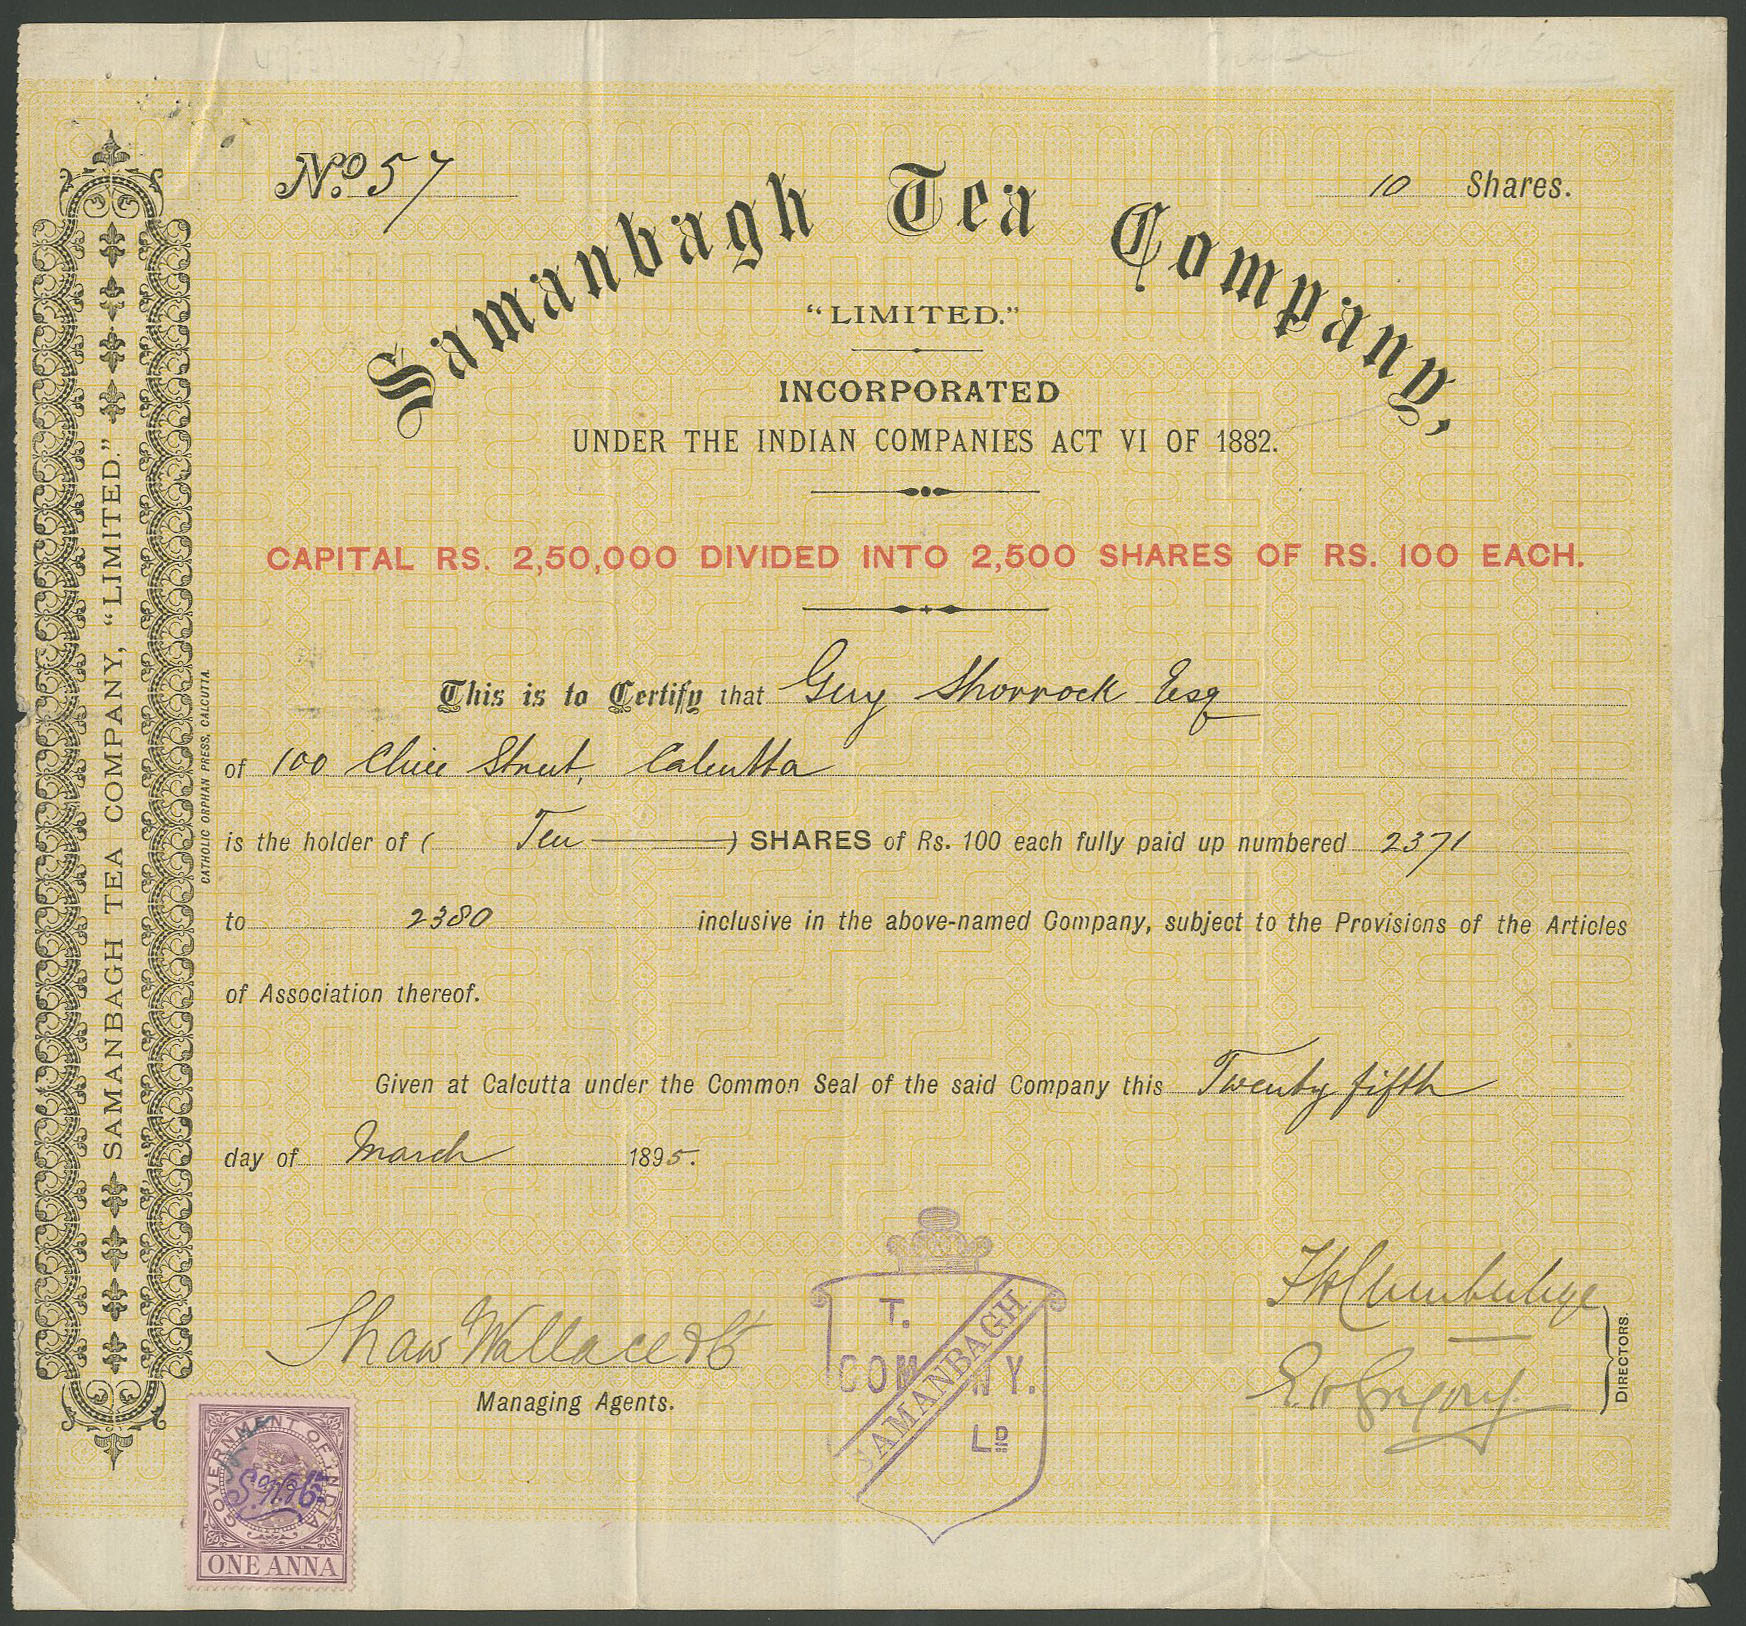 No. 57
10 Shares.
Samanbagh Tea Company,
"LIMITED."
INCORPORATED
UNDER THE INDIAN COMPANIES ACT VI OF 1882.
CAPITAL RS. 2,50,000 DIVIDED INTO 2,500 SHARES OF RS. 100 EACH.
This is to Certify that Guy Shorrock Esq
of 100 Clive Street, Calcutta
is the holder of ( Ten ) SHARES of Rs. 100 each fully paid up numbered 2371
to 2380 inclusive in the above-named Company, subject to the Provisions of the Articles
of Association thereof.
Given at Calcutta under the Common Seal of the said Company this Twenty fifth
day of March 1895.
Shaw Wallace & Co
Managing Agents.
E. W Gregory
DIRECTORS.
T.
COMPANY.
SAMANBAGH
LD
GOVERNMENT OF INDIA
ONE ANNA
SAMANBAGH TEA COMPANY, "LIMITED."
CATHOLIC ORPHAN PRESS, CALCUTTA.